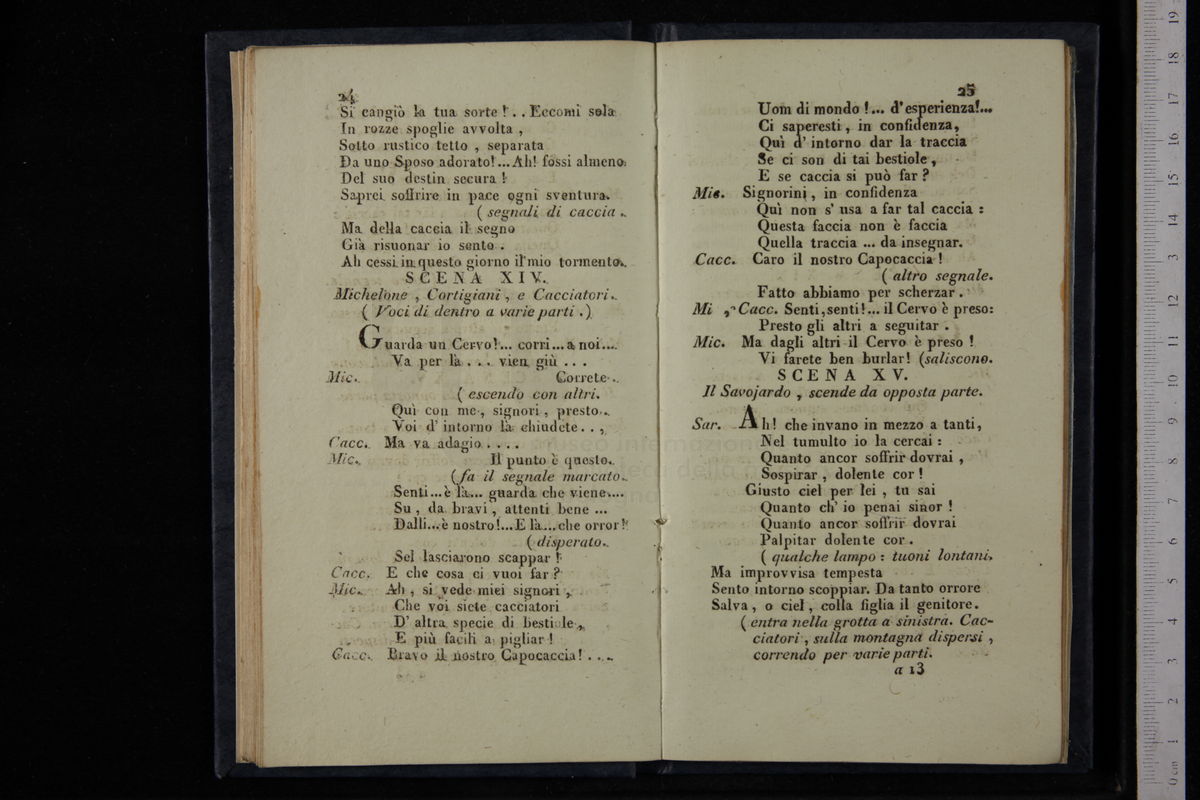 24
Si cangiò la tua sorte!.. Eccomi sola
In rozze spoglie avvolta,
Sotto rustico tetto, separata
Da uno Sposo adorato!... Ah! fossi almeno
Del suo destin secura!
Saprei soffrire in pace ogni sventura.
(segnali di caccia.
Ma della caccia il segno
Già risuonar io sento.
Ah cessi in questo giorno il mio tormento.
SCENA XIV.
Michelone, Cortigiani, e Cacciatori.
(Voci di dentro a varie parti.)
Guarda un Cervo!... corri... a noi...
Va per là... vien giù...
Mic. Correte.
(escendo con altri.
Quì con me, signori, presto.
Voi d'intorno là chiudete..,
Cacc. Ma va adagio....
Mic. Il punto è questo.
(fa il segnale marcato.
Senti... è là... guarda che viene....
Su, da bravi, attenti bene...
Dalli... è nostro!... E là... che orror!
(disperato.
Sel lasciarono scappar!
Cacc. E che cosa ci vuoi far?
Mic. Ah, si vede miei signori,
Che voi siete cacciatori
D'altra specie di bestiole,
E più facili a pigliar!
Cacc. Bravo il nostro Capocaccia!...
25
Uom di mondo!... d'esperienza!...
Ci saperesti, in confidenza,
Quì d'intorno dar la traccia
Se ci son di tai bestiole,
E se caccia si può far?
Mic. Signorini, in confidenza
Quì non s'usa a far tal caccia:
Questa faccia non è faccia
Quella traccia... da insegnar.
Cacc. Caro il nostro Capocaccia!
(altro segnale.
Fatto abbiamo per scherzar.
Mi, Cacc. Senti, senti!... il Cervo è preso:
Presto gli altri a seguitar.
Mic. Ma dagli altri il Cervo è preso!
Vi farete ben burlar! (saliscono.
SCENA XV.
Il Savojardo, scende da opposta parte.
Sav. Ah! che invano in mezzo a tanti,
Nel tumulto io la cercai:
Quanto ancor soffrir dovrai,
Sospirar, dolente cor!
Giusto ciel per lei, tu sai
Quanto ch'io penai sinor!
Quanto ancor soffrir dovrai
Palpitar dolente cor.
(qualche lampo: tuoni lontani.
Ma improvvisa tempesta
Sento intorno scoppiar. Da tanto orrore
Salva, o ciel, colla figlia il genitore.
(entra nella grotta a sinistra. Cac-
ciatori, sulla montagna dispersi,
correndo per varie parti.
a 13